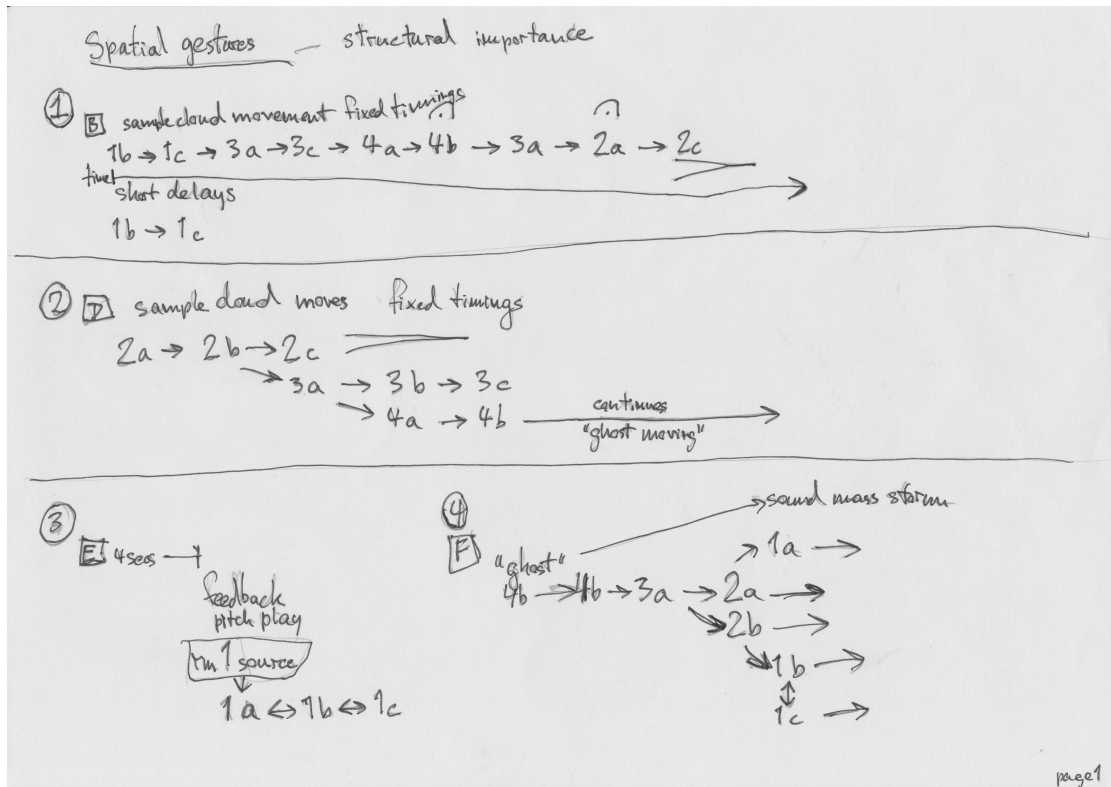 Spatial gestures — structural importance
① B sample cloud movement fixed timings
1b → 1c → 3a → 3c → 4a → 4b → 3a → 2a → 2c
time
short delays
1b → 1c
② D sample cloud moves fixed timings
2a → 2b → 2c
→ 3a → 3b → 3c
→ 4a → 4b → continues
"ghost moving"
③
E 4secs →
feedback
pitch play
rm 1 source
↓
1a ↔ 1b ↔ 1c
④ → sound mass storm
F "ghost"
↗ 1a →
4b → 4b → 3a → 2a →
↘ 2b →
↘ 1b →
↕
1c →
page 1